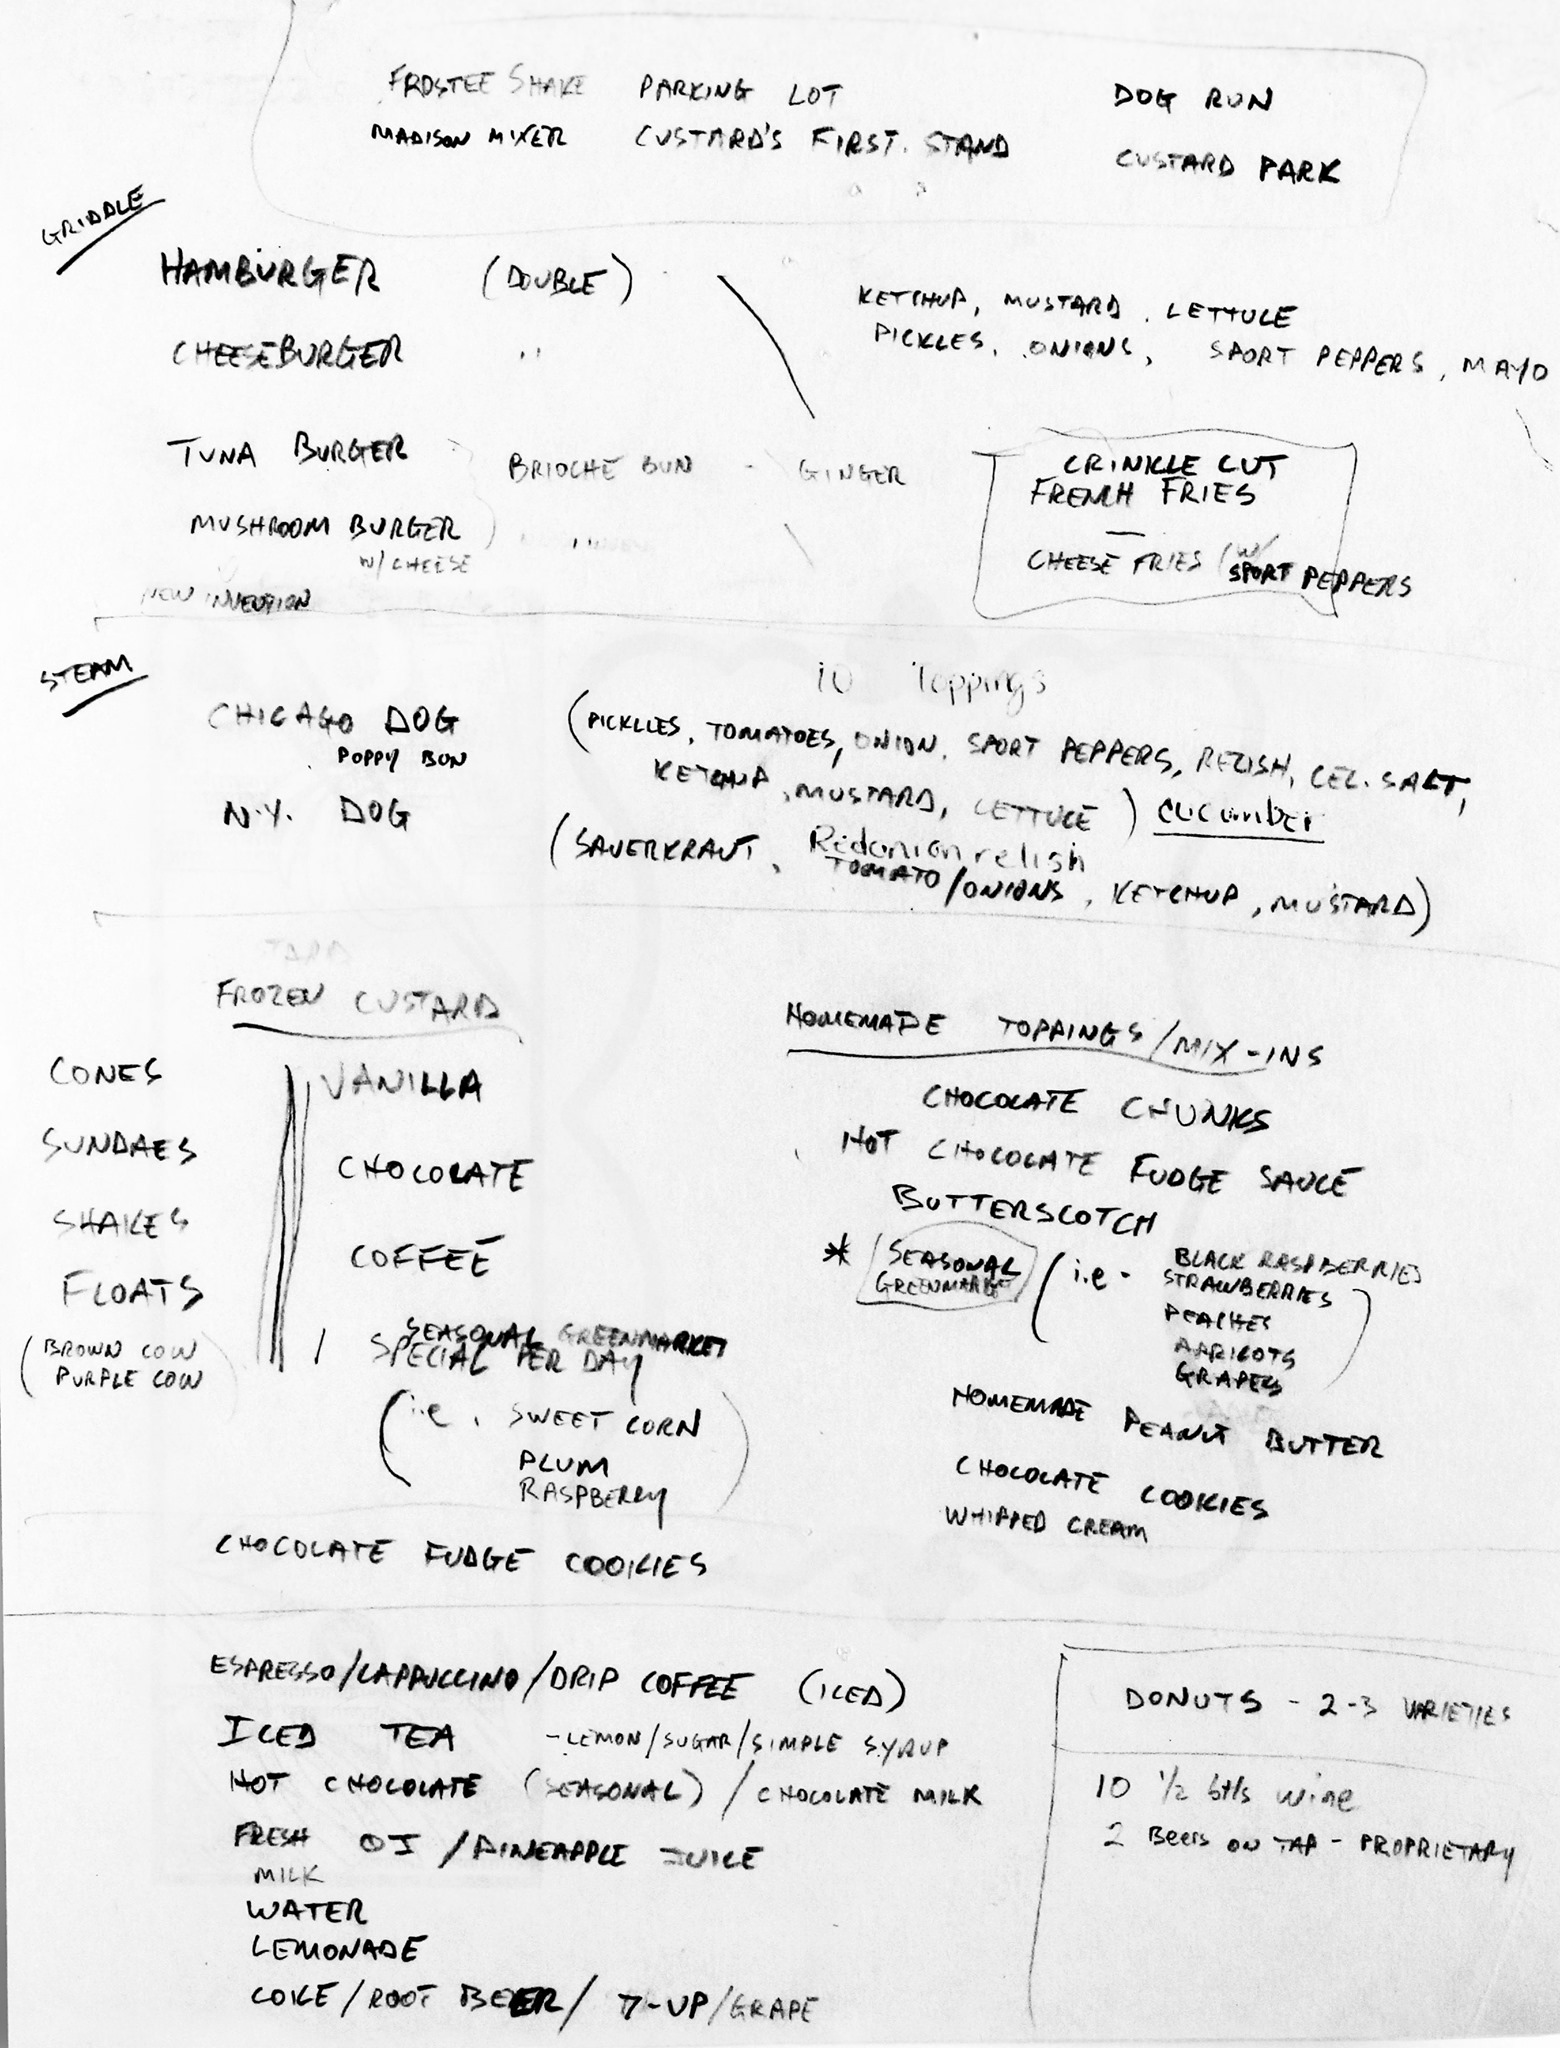 FROSTEE SHAKE PARKING LOT DOG RUN
MADISON MIXER CUSTARD'S FIRST. STAND CUSTARD PARK
GRIDDLE
HAMBURGER (DOUBLE)
CHEESEBURGER "
KETCHUP, MUSTARD, LETTUCE
PICKLES, ONIONS, SPORT PEPPERS, MAYO
TUNA BURGER BRIOCHE BUN - GINGER
MUSHROOM BURGER "
W/ CHEESE
NEW INVENTION
CRINKLE CUT
FRENCH FRIES
—
CHEESE FRIES (W/
SPORT PEPPERS
STEAM
10 Toppings
CHICAGO DOG (PICKLLES, TOMATOES, ONION, SPORT PEPPERS, RELISH, CEL. SALT,
POPPY BUN KETCHUP, MUSTARD, LETTUCE) cucumber
N.Y. DOG (SAUERKRAUT, Red onion relish
TOMATO/ONIONS, KETCHUP, MUSTARD)
FROZEN CUSTARD
CONES
SUNDAES
SHAKES
FLOATS
(BROWN COW
PURPLE COW)
VANILLA
CHOCOLATE
COFFEE
SEASONAL GREENMARKET
SPECIAL PER DAY
(i.e. SWEET CORN
PLUM
RASPBERRY)
CHOCOLATE FUDGE COOKIES
HOMEMADE TOPPINGS/MIX-INS
CHOCOLATE CHUNKS
HOT CHOCOLATE FUDGE SAUCE
BUTTERSCOTCH
* SEASONAL
GREENMARKET
(i.e - BLACK RASPBERRIES
STRAWBERRIES
PEACHES
APRICOTS
GRAPES)
HOMEMADE PEANUT BUTTER
CHOCOLATE COOKIES
WHIPPED CREAM
ESPRESSO/CAPPUCCINO/DRIP COFFEE (ICED)
ICED TEA -LEMON/SUGAR/SIMPLE SYRUP
HOT CHOCOLATE (SEASONAL) / CHOCOLATE MILK
FRESH OJ / PINEAPPLE JUICE
MILK
WATER
LEMONADE
COKE/ROOT BEER/ 7-UP/GRAPE
DONUTS - 2-3 VARIETIES
10 1/2 btls wine
2 Beers ON TAP - PROPRIETARY